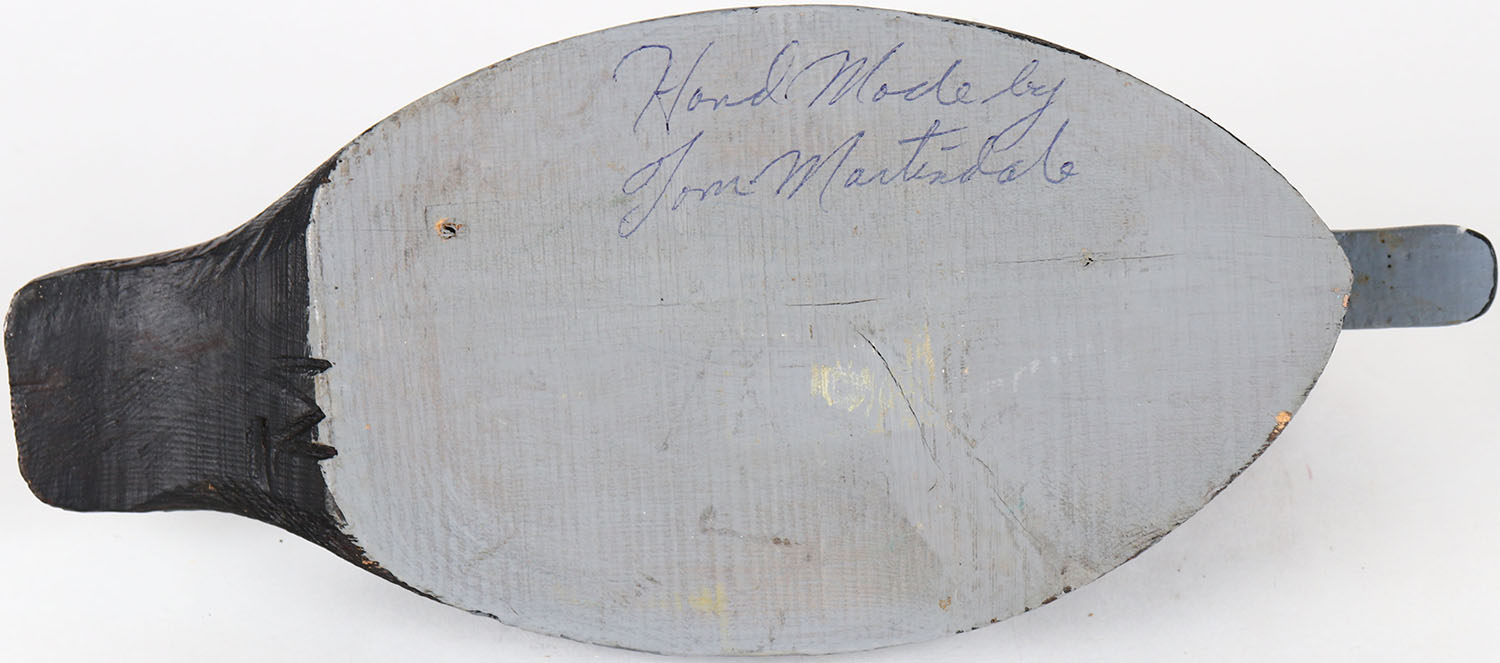 Hand Made by
Tom Martindale